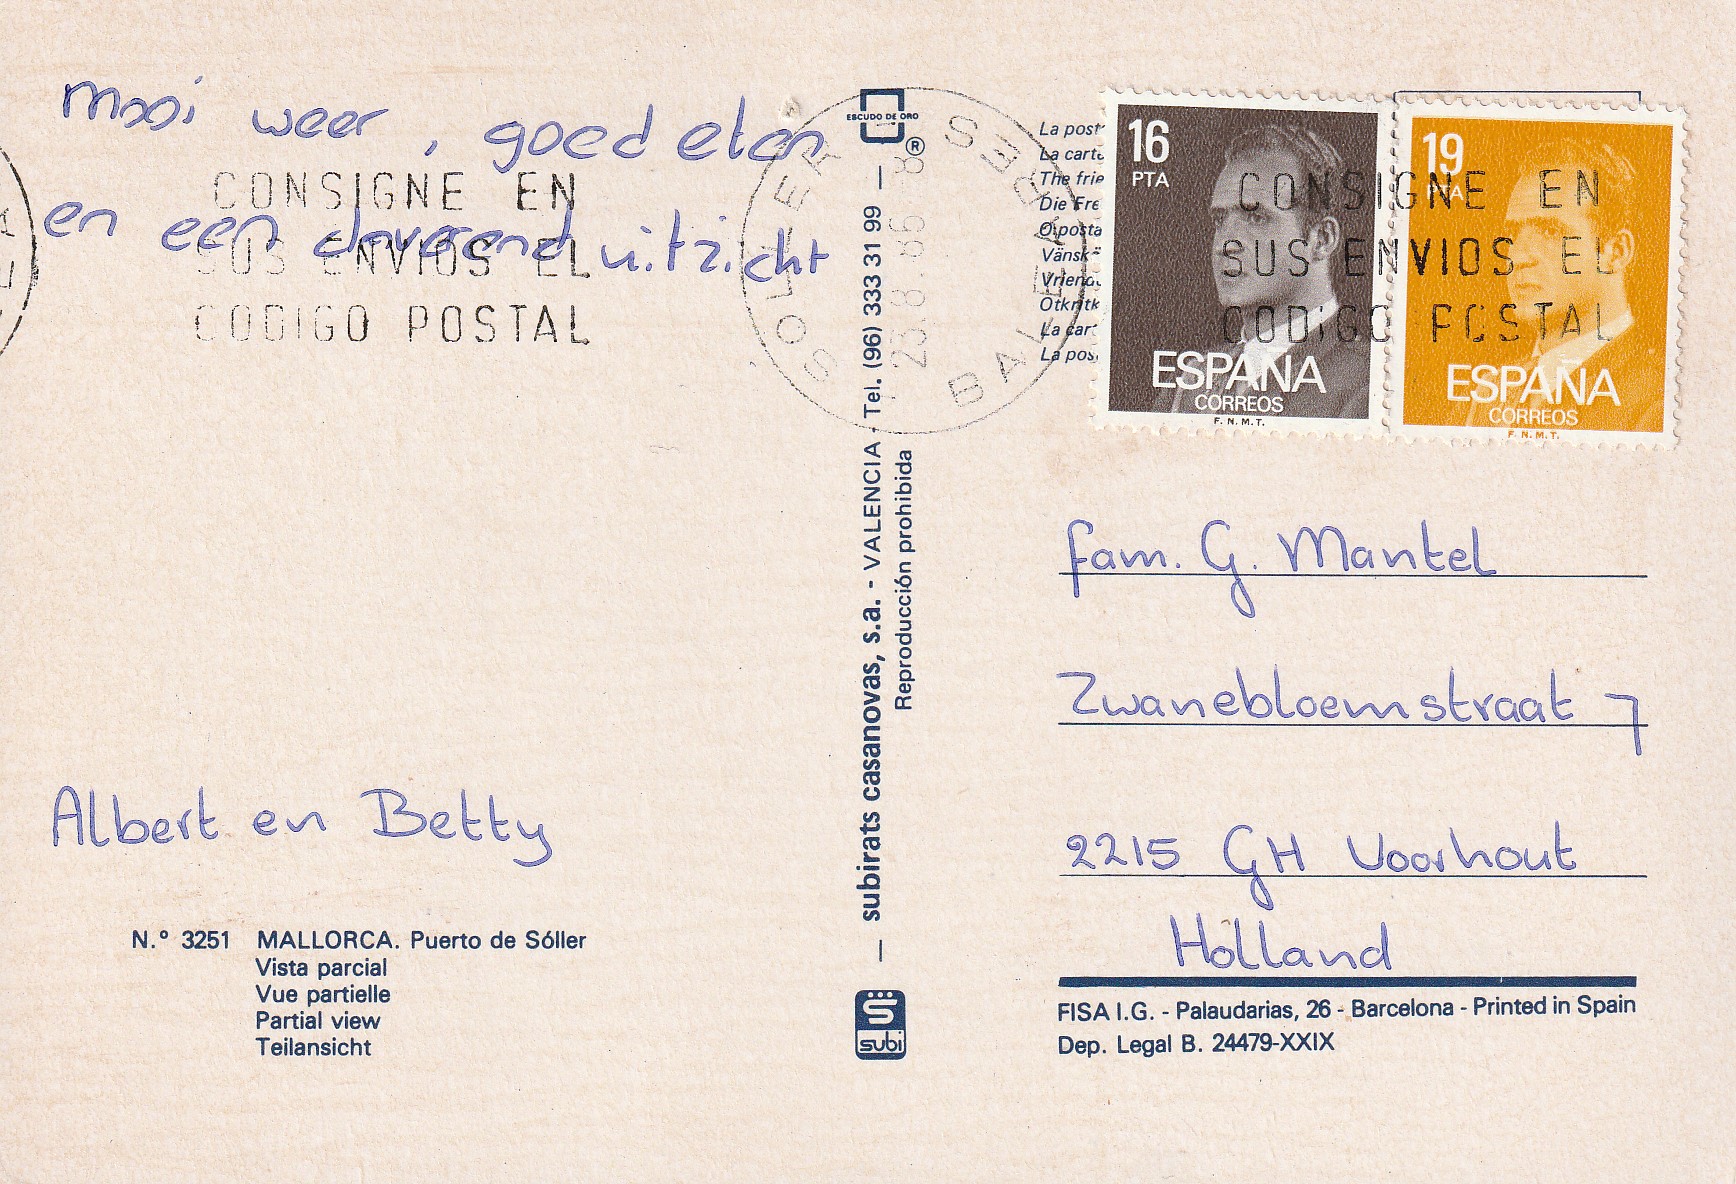 mooi weer, goed eten
en een daverend uitzicht
Albert en Betty
N.º 3251 MALLORCA. Puerto de Sóller
Vista parcial
Vue partielle
Partial view
Teilansicht
CONSIGNE EN
SUS ENVIOS EL
CODIGO POSTAL
ESCUDO DE ORO
®
subirats casanovas, s.a. - VALENCIA - Tel. (96) 333 31 99 —
Reproducción prohibida
subi
SOLLER
BALEARES
23.8 86
La post
La carte
The frie
Die Fre
Oi posta
Vänsk
Vriend
Otkritk
La car
La pos
16
PTA
ESPAÑA
CORREOS
F.N.M.T.
19
PTA
ESPAÑA
CORREOS
F.N.M.T.
CONSIGNE EN
SUS ENVIOS EL
CODIGO POSTAL
fam. G. Mantel
Zwanebloemstraat 7
2215 GH Voorhout
Holland
FISA I.G. - Palaudarias, 26 - Barcelona - Printed in Spain
Dep. Legal B. 24479-XXIX